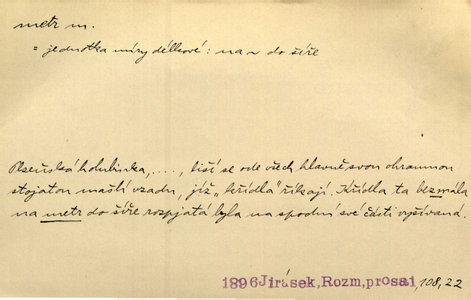 metr m.
= jednotka míry délkové: na ~ do šíře
Plzeňská holubinka, ...., liší se ode všech hlavně svou ohromnou
stojatou mašlí vzadu, již „křídla" říkají. Křídla ta bezmála
na metr do šíře rozpjatá byla na spodní své části vyšívaná.
1896 Jirásek, Rozm, prosa I, 108, 22